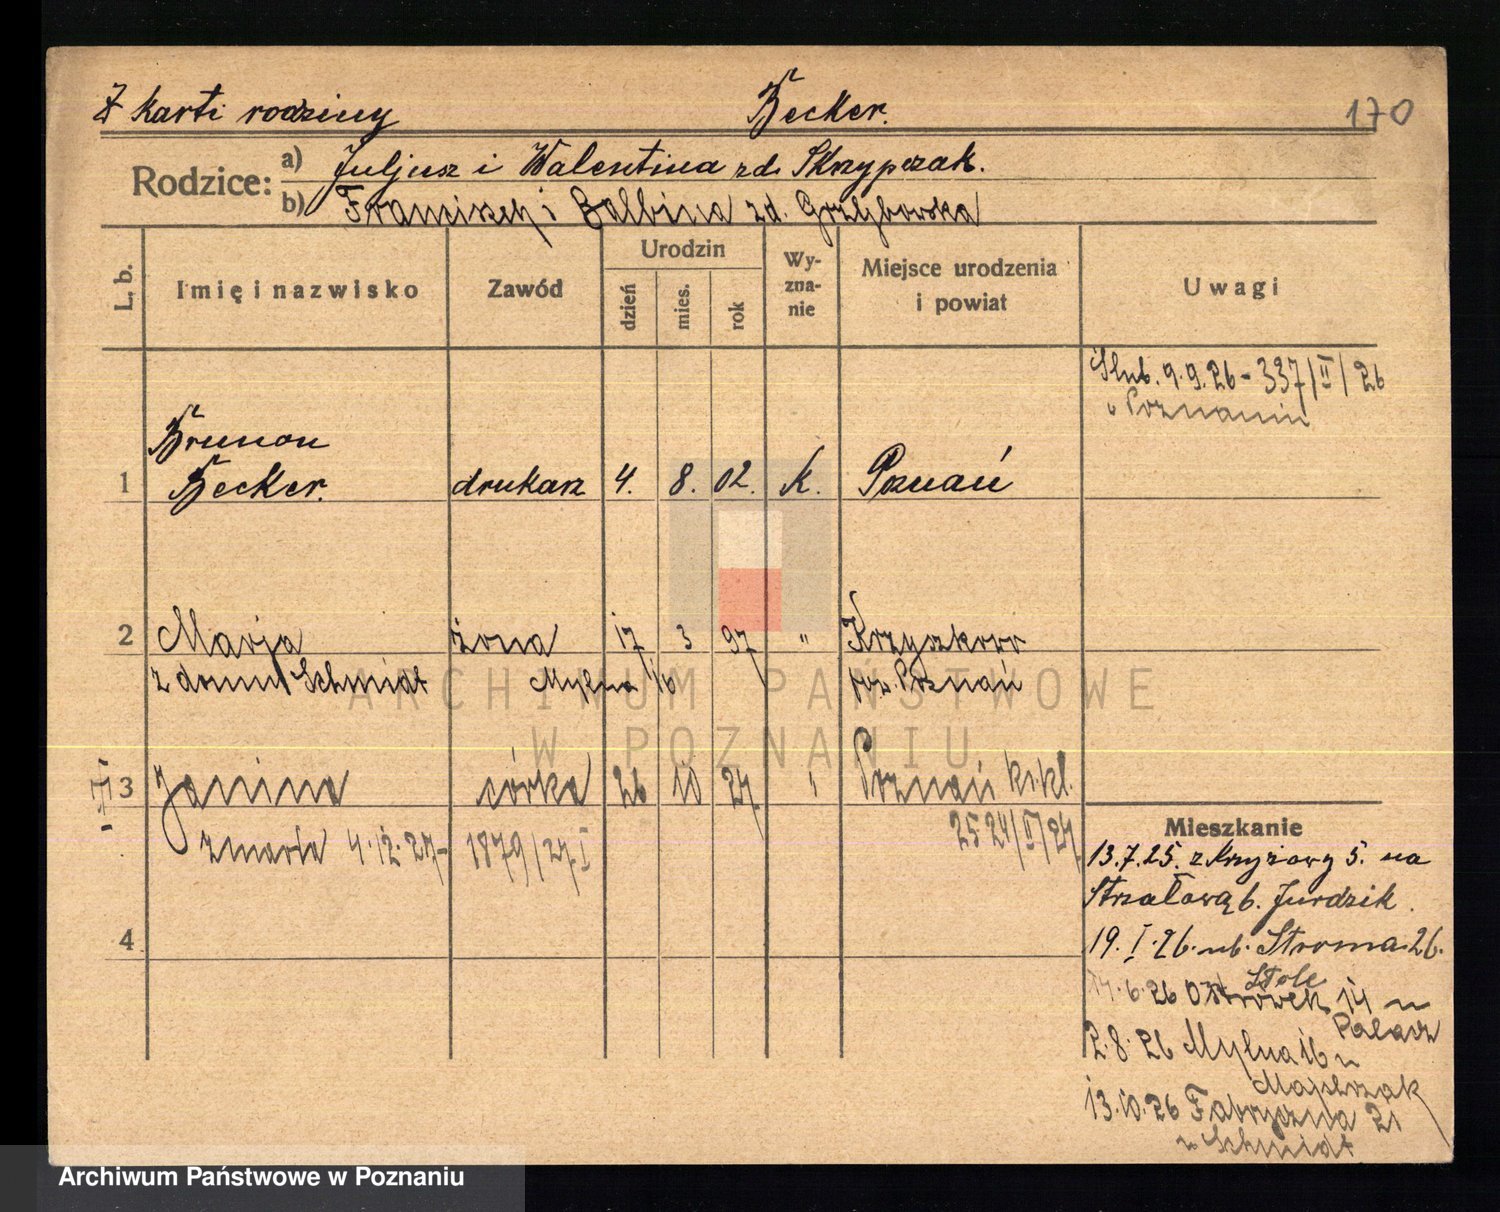 Z karti rodziny Becker. 170
Rodzice: a) Juljusz i Walentina zd. Skrzypczak.
b) Franciszek i Balbina zd. Grzybowska
L. b. Imię i nazwisko Zawód Urodzin dzień mies. rok Wyznanie Miejsce urodzenia i powiat Uwagi
Ślub. 9.9.26 - 337/II/26
w Poznaniu
Brunon
1 Becker. drukarz 4. 8. 02. k. Poznań
2 Marja żona 17 3 97 " Krzyszkowo
z domu Schmidt Mylna 16 pow. Poznań
3 Janina córka 26 10 27 " Poznań
zmarła 4.12.27 - 1879/27 I 2524/II/27
4
Mieszkanie
13.7.25. z Krzyżowy 5. na
Strzałową 6. Jurdzik.
19.I.26. ub. Stroma 26.
14.6.26 Ostrówek 14 u
Palacz
2.8.26 Mylna 16 u
Majchrzak
13.10.26 Fabryczna 21
u Schmidt
ARCHIWUM PAŃSTWOWE
W POZNANIU
Archiwum Państwowe w Poznaniu